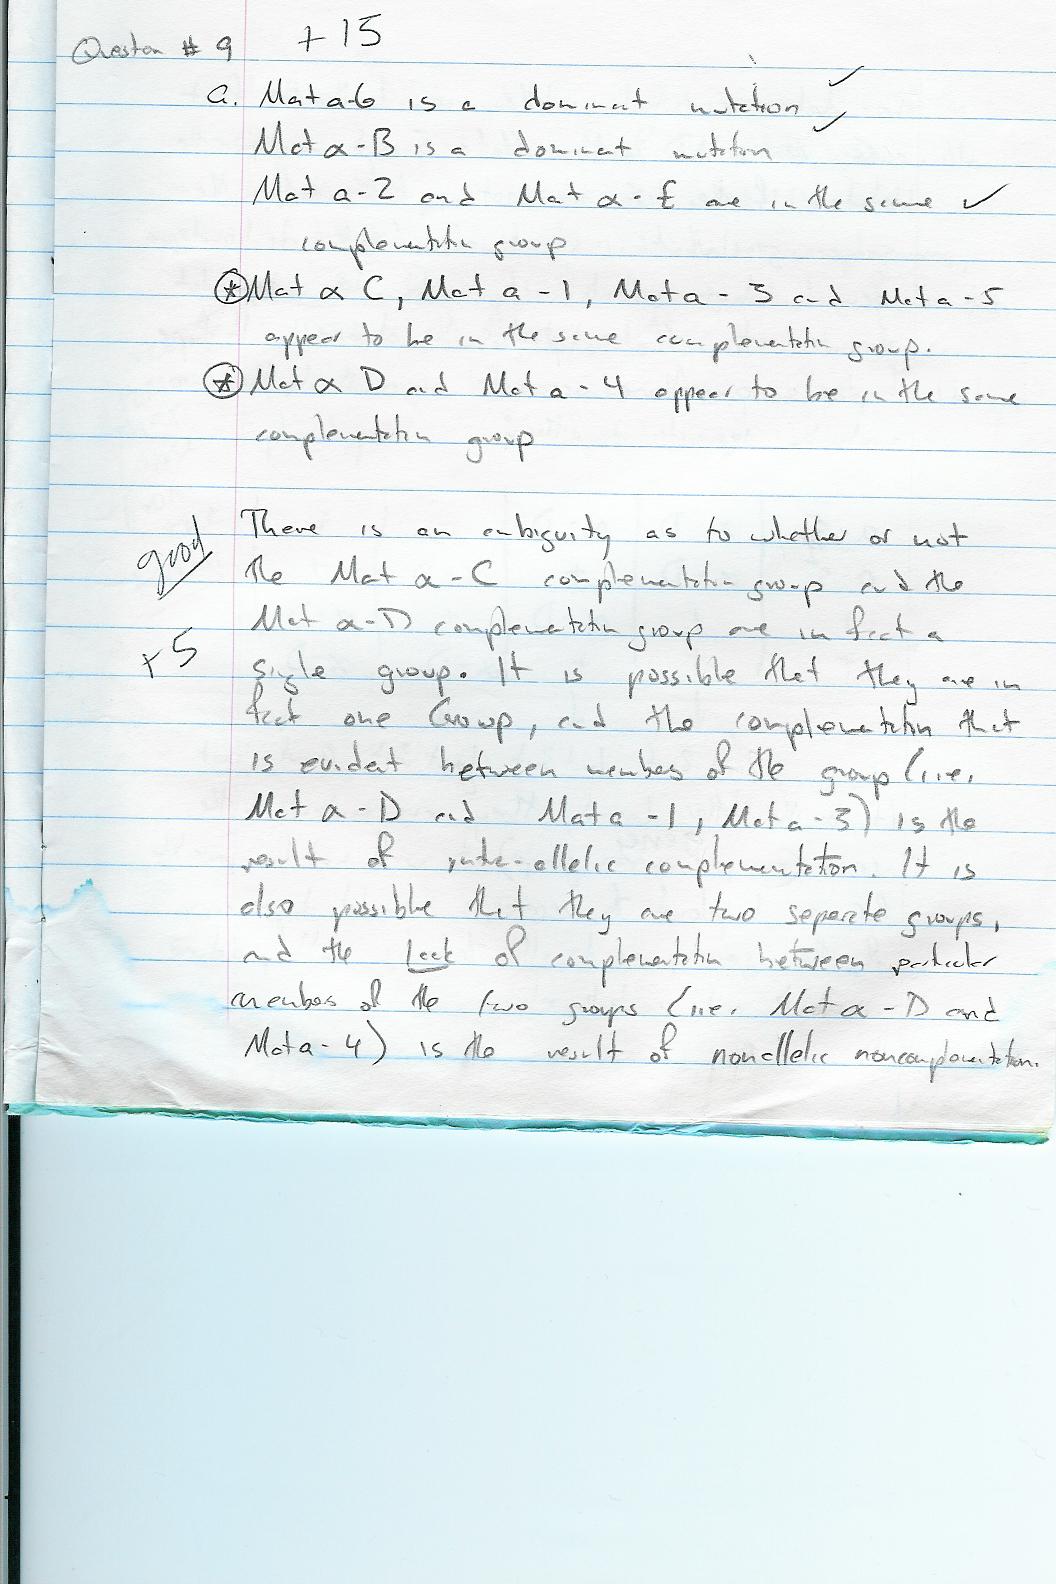 Question # 9 +15
a. Mat a-6 is a dominant mutation ✓
Mat α-B is a dominant mutation ✓
Mat a-2 and Mat α-E are in the same ✓
complementation group
⊛ Mat α C, Mat a-1, Mat a-3 and Mat a-5
appear to be in the same complementation group.
⊛ Mat α D and Mat a-4 appear to be in the same
complementation group
There is an ambiguity as to whether or not
good
the Mat α-C complementation group and the
Mat α-D complementation group are in fact a
+5
single group. It is possible that they are in
fact one Group, and the complementation that
is evident between members of the group (i.e.
Mat α-D and Mat a-1, Mat a-3) is the
result of intra-allelic complementation. It is
also possible that they are two separate groups,
and the lack of complementation between particular
members of the two groups (i.e. Mat α-D and
Mat a-4) is the result of nonallelic noncomplementation.